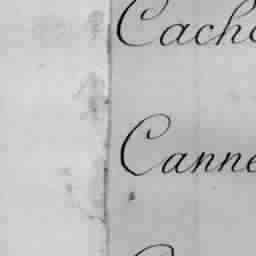 Cach
Canne